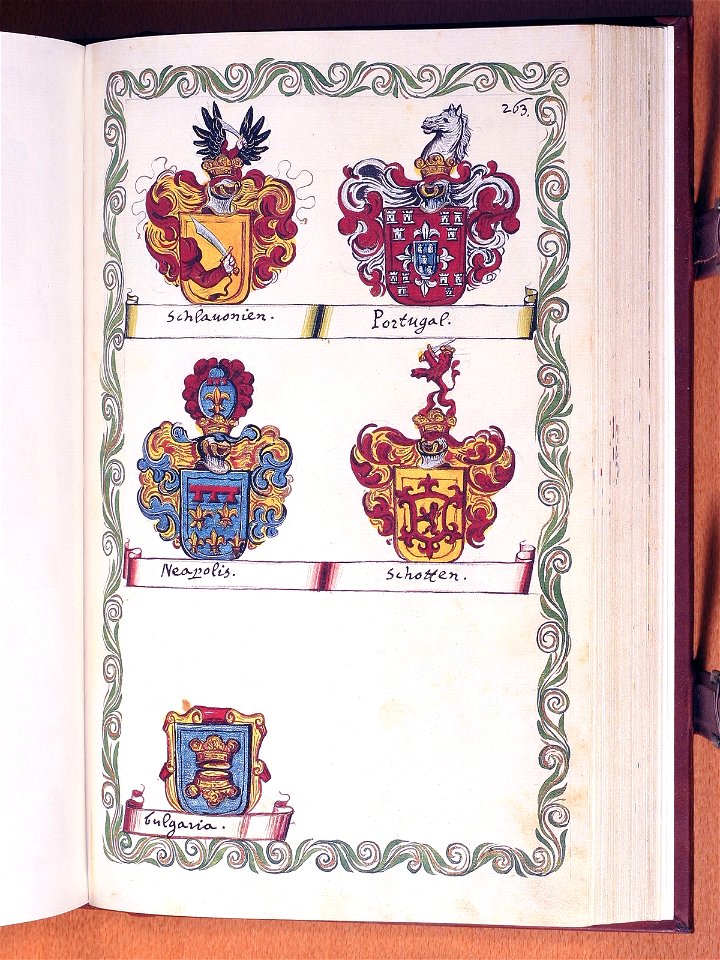 263.
Schlauonien.
Portugal.
Neapolis.
Schotten.
bulgaria.